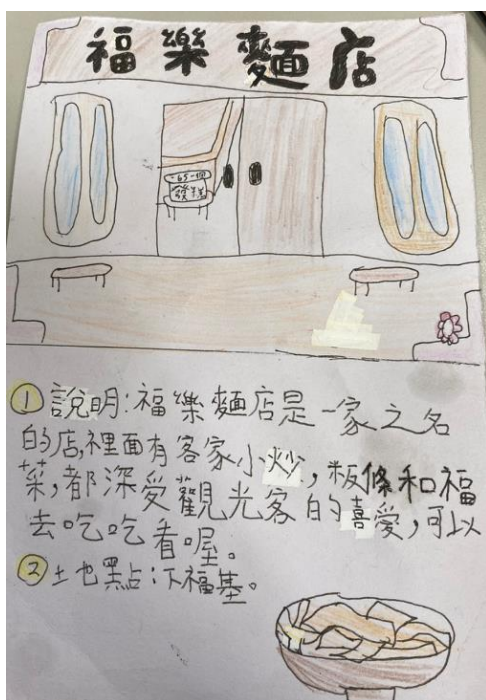 福樂麵店
65一個
發糕
①說明:福樂麵店是一家之名
的店,裡面有客家小炒,粄條和福
菜,都深受觀光客的喜愛,可以
去吃吃看喔。
②土也點:下福基。